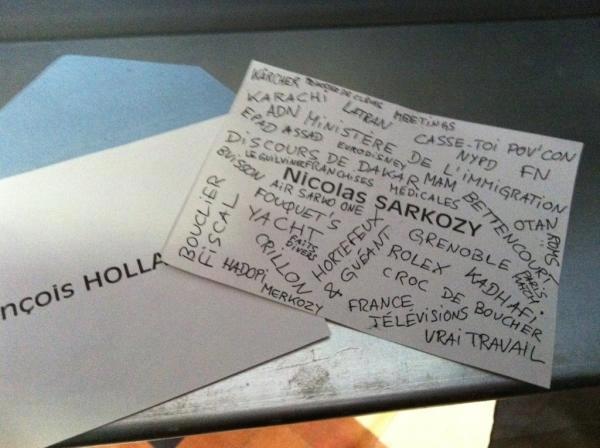 KÄRCHER MEETINGS
KARACHI LATRAN
ADN MINISTÈRE DE L'IMMIGRATION
CASSE-TOI POV'CON
NYPD FN
EPAD ASSAD EURODISNEY
DISCOURS DE DAKAR MAM BETTENCOURT
LE GUILVINEC FRANCHISES MÉDICALES
OTAN
BUISSON
Nicolas SARKOZY
AIR SARKO ONE
FOUQUET'S
BOUCLIER
FISCAL
YACHT
FAITS
DIVERS
HORTEFEUX
& GUÉANT
GRENOBLE
ROLEX KADHAFI
PARIS
MATCH
CRILLON
CROC DE BOUCHER
HADOPI
MERKOZY
FRANCE
TÉLÉVISIONS
VRAI TRAVAIL
nçois HOLLA